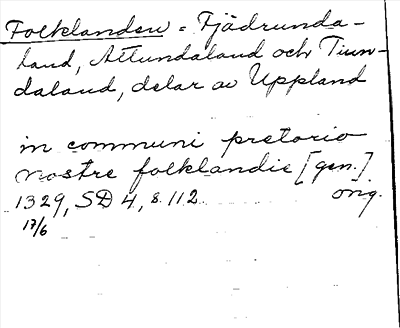 Folklanden = Fjädrunda-
land, Attundaland och Tiun-
daland, delar av Uppland
in communi pretorio
nostre folklandie [gen.]
1329, SD 4, s. 112. orig.
17/6